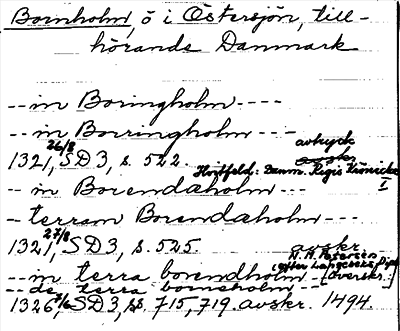 Bornholm, ö i Östersjön, till-
hörande Danmark
-- in Boringholm ----
-- in Borringholm ---
26/8 avtryck
1321, SD 3, s. 522. avskr.
Hvitfeld: Danm. Regis Krönicke I
-- in Borendaholm ---
- terram Borendaholm ---
27/8
1321, SD 3, s. 525. avskr.
N. M. Petersen
(efter Langebeks
-- in terra borendholm -- [överskr.:]
-- de terra bornsholm --
1326, SD 3, ss. 715, 719. avskr. 1494.